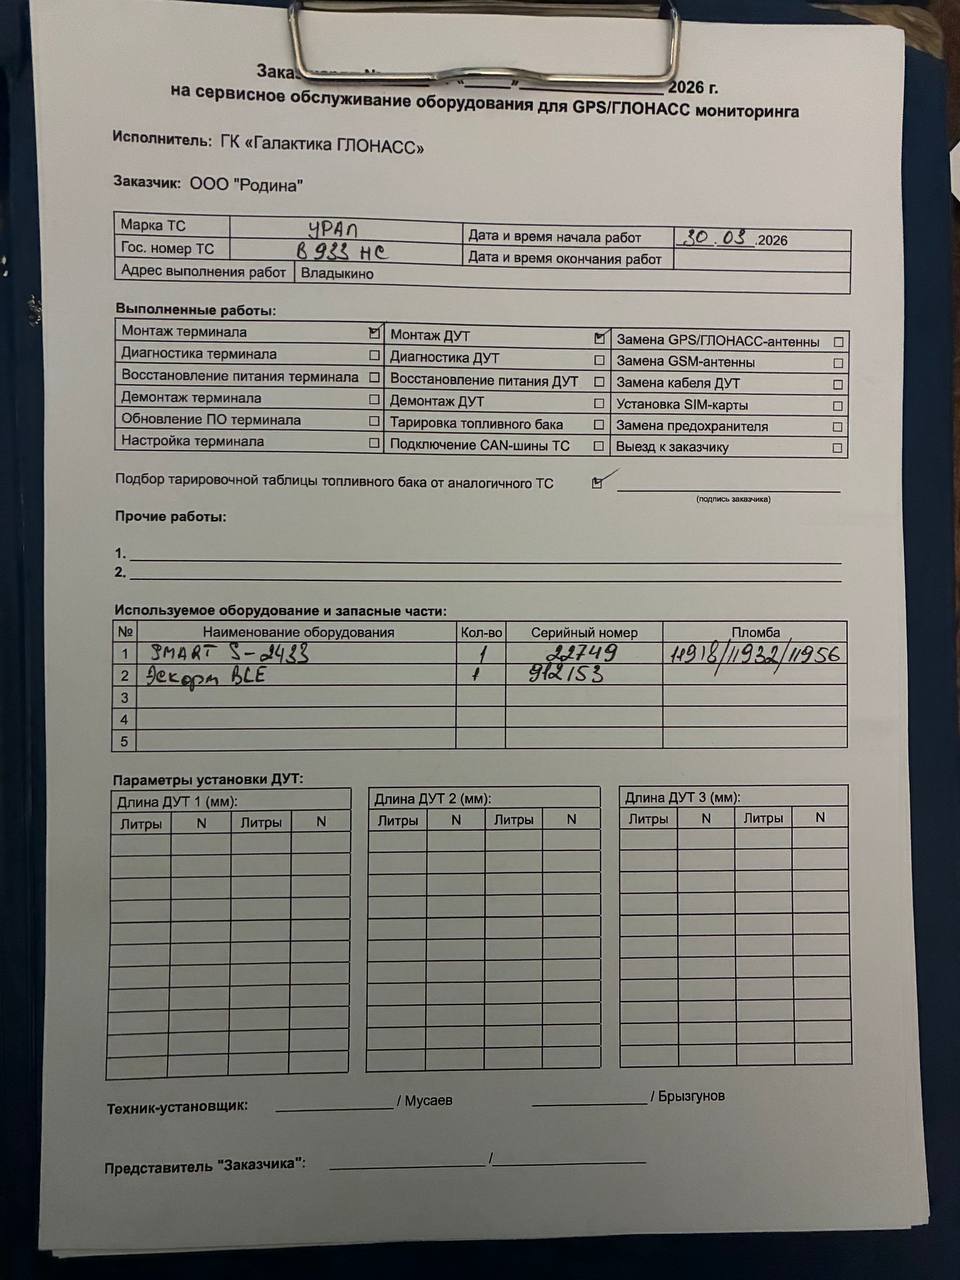 2026 г.
на сервисное обслуживание оборудования для GPS/ГЛОНАСС мониторинга
Исполнитель: ГК «Галактика ГЛОНАСС»
Заказчик: ООО "Родина"
Марка ТС УРАЛ Дата и время начала работ 30.03.2026
Гос. номер ТС В 933 НС Дата и время окончания работ
Адрес выполнения работ Владыкино
Выполненные работы:
Монтаж терминала ☑ Монтаж ДУТ ☑ Замена GPS/ГЛОНАСС-антенны ☐
Диагностика терминала ☐ Диагностика ДУТ ☐ Замена GSM-антенны ☐
Восстановление питания терминала ☐ Восстановление питания ДУТ ☐ Замена кабеля ДУТ ☐
Демонтаж терминала ☐ Демонтаж ДУТ ☐ Установка SIM-карты ☐
Обновление ПО терминала ☐ Тарировка топливного бака ☐ Замена предохранителя ☐
Настройка терминала ☐ Подключение CAN-шины ТС ☐ Выезд к заказчику ☐
Подбор тарировочной таблицы топливного бака от аналогичного ТС ☑
(подпись заказчика)
Прочие работы:
1.
2.
Используемое оборудование и запасные части:
№ Наименование оборудования Кол-во Серийный номер Пломба
1 SMART S-2433 1 22749 11918/11932/11956
2 Эскорт BLE 1 912153
3
4
5
Параметры установки ДУТ:
Длина ДУТ 1 (мм): Длина ДУТ 2 (мм): Длина ДУТ 3 (мм):
Литры N Литры N Литры N Литры N Литры N Литры N
Техник-установщик: / Мусаев / Брызгунов
Представитель "Заказчика": /